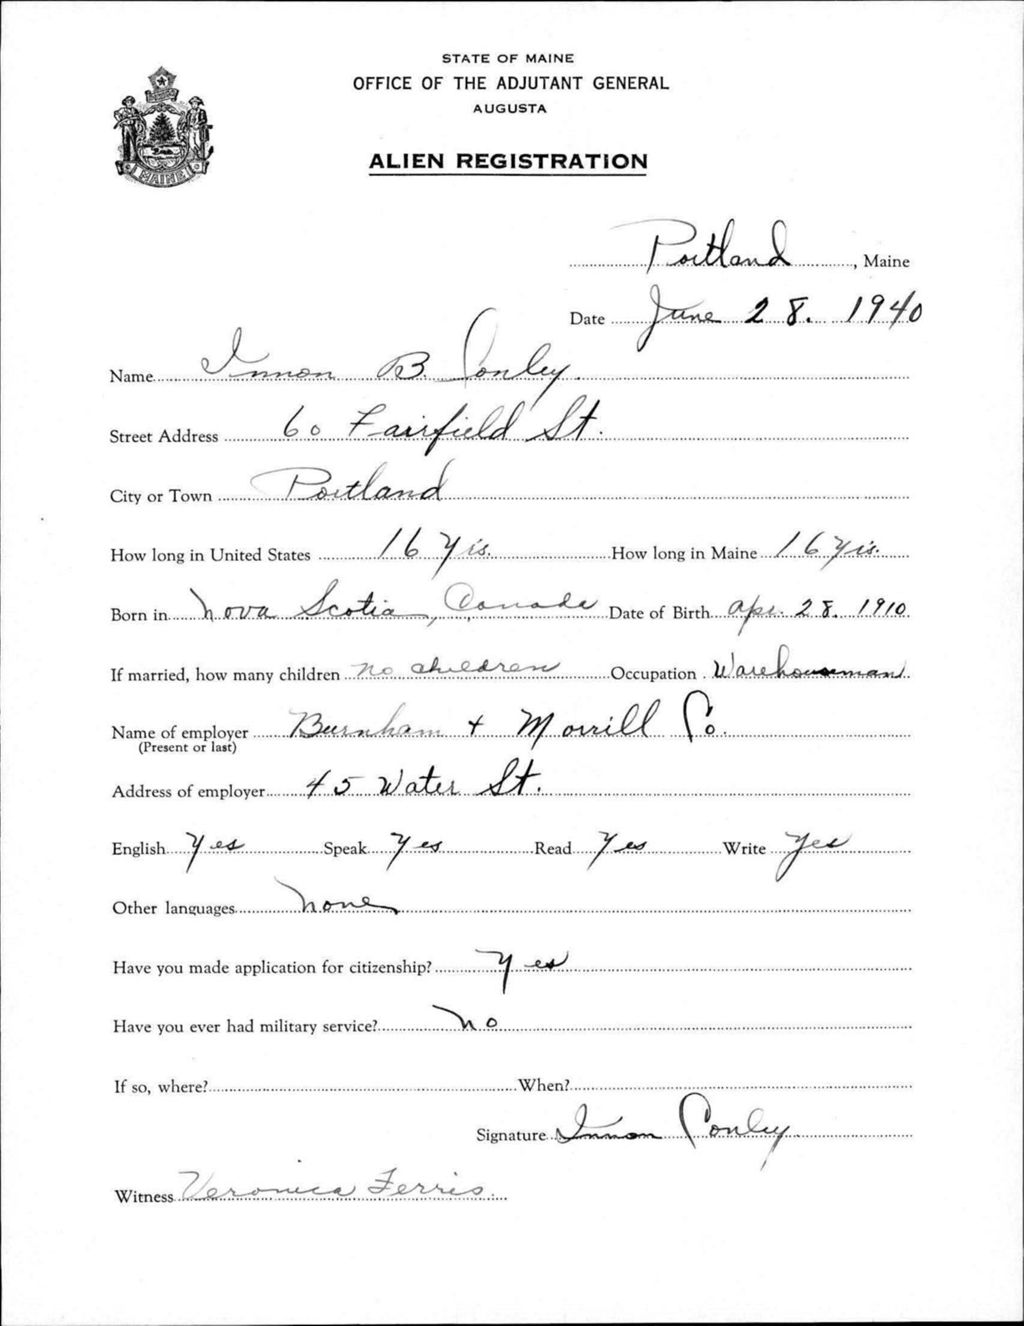 STATE OF MAINE
OFFICE OF THE ADJUTANT GENERAL
AUGUSTA
ALIEN REGISTRATION
MAINE
Portland, Maine
Date June 28. 1940
Name Inmon B. Conley.
Street Address 60 Fairfield St.
City or Town Portland
How long in United States 16 Yrs. How long in Maine 16 Yrs.
Born in Nova Scotia, Canada Date of Birth Apr. 28. 1910
If married, how many children no children Occupation Warehouseman
Name of employer Burnham + Morrill Co.
(Present or last)
Address of employer 45 Water St.
English Yes Speak Yes Read Yes Write Yes
Other languages None
Have you made application for citizenship? Yes
Have you ever had military service? No
If so, where? When?
Signature Inmon Conley
Witness Veronica Ferris.